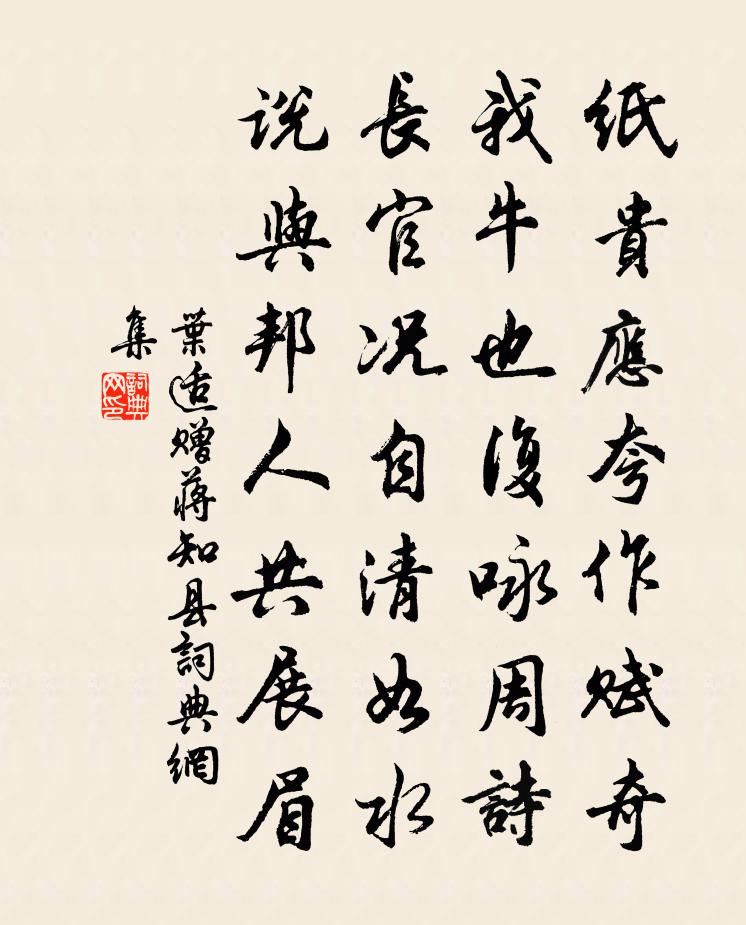 紙貴應夸作賦奇
我牛也復咏周詩
長官况自清如水
説與邦人共展眉
葉适贈蔣知县詞典網
集
詞典网印